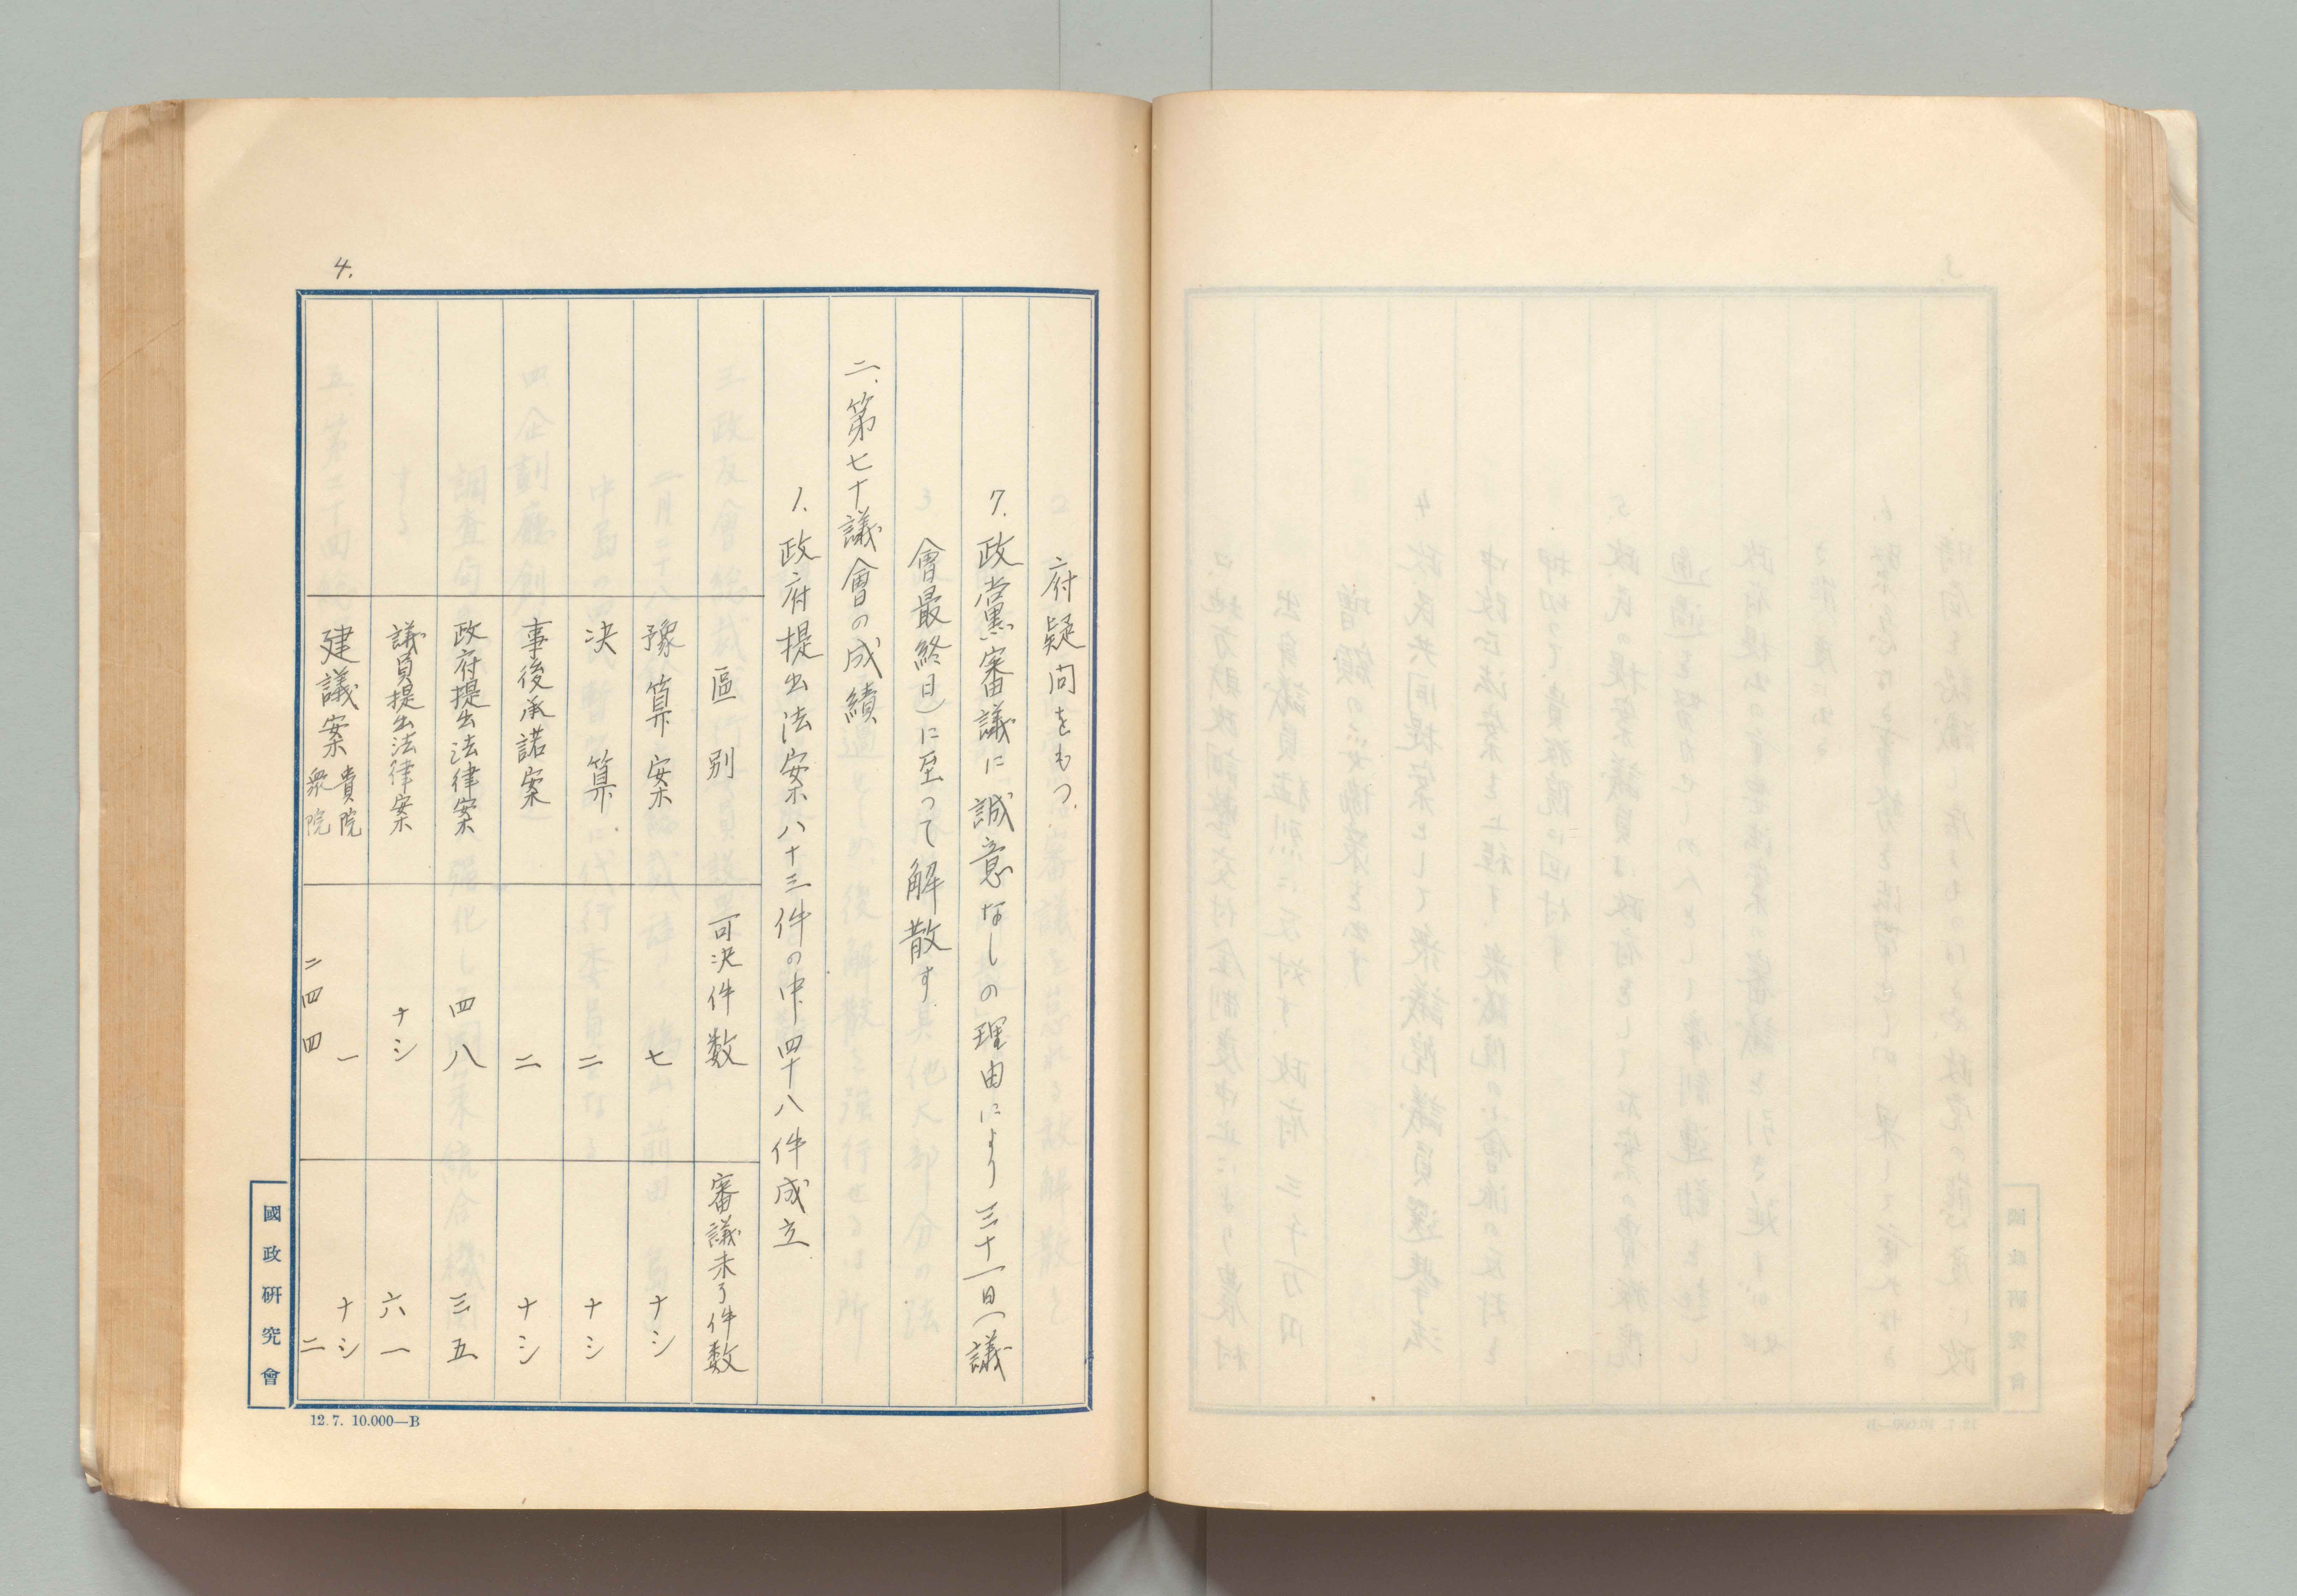 4.
府疑问をもつ.
7. 政党審議に誠意なしの理由により三十一日(議
會最終日)に至って解散す.
二. 第七十議會の成績
1. 政府提出法案八十三件の中四十八件成立
區別 可決件数 審議未了件数
豫算案 七 ナシ
決算 二 ナシ
事後承諾案 二 ナシ
政府提出法律案 四八 三五
議員提出法律案 ナシ 六一
建議案 貴院 一 ナシ
衆院 二四四 二
國政研究會
12.7. 10.000—B